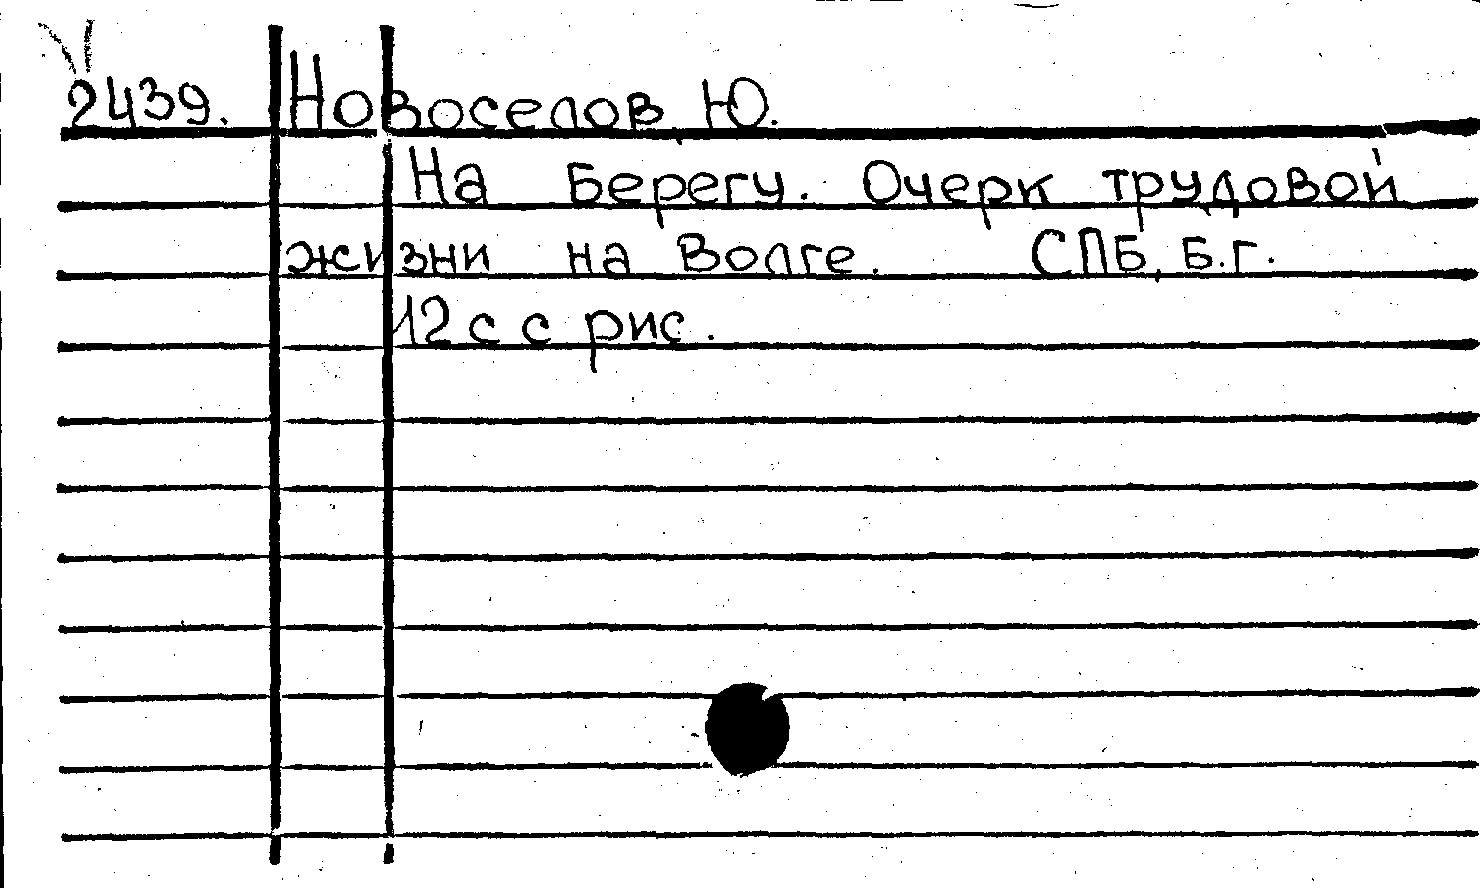 2439. Новоселов Ю.
На Берегу. Очерк трудовой
жизни на Волге. СПБ, Б.г.
12 с с рис.